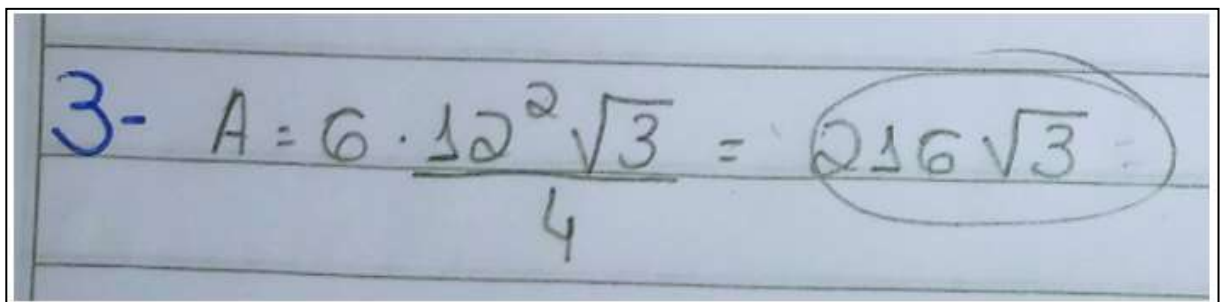 3- A = 6 · 12² √3 / 4 = 216 √3